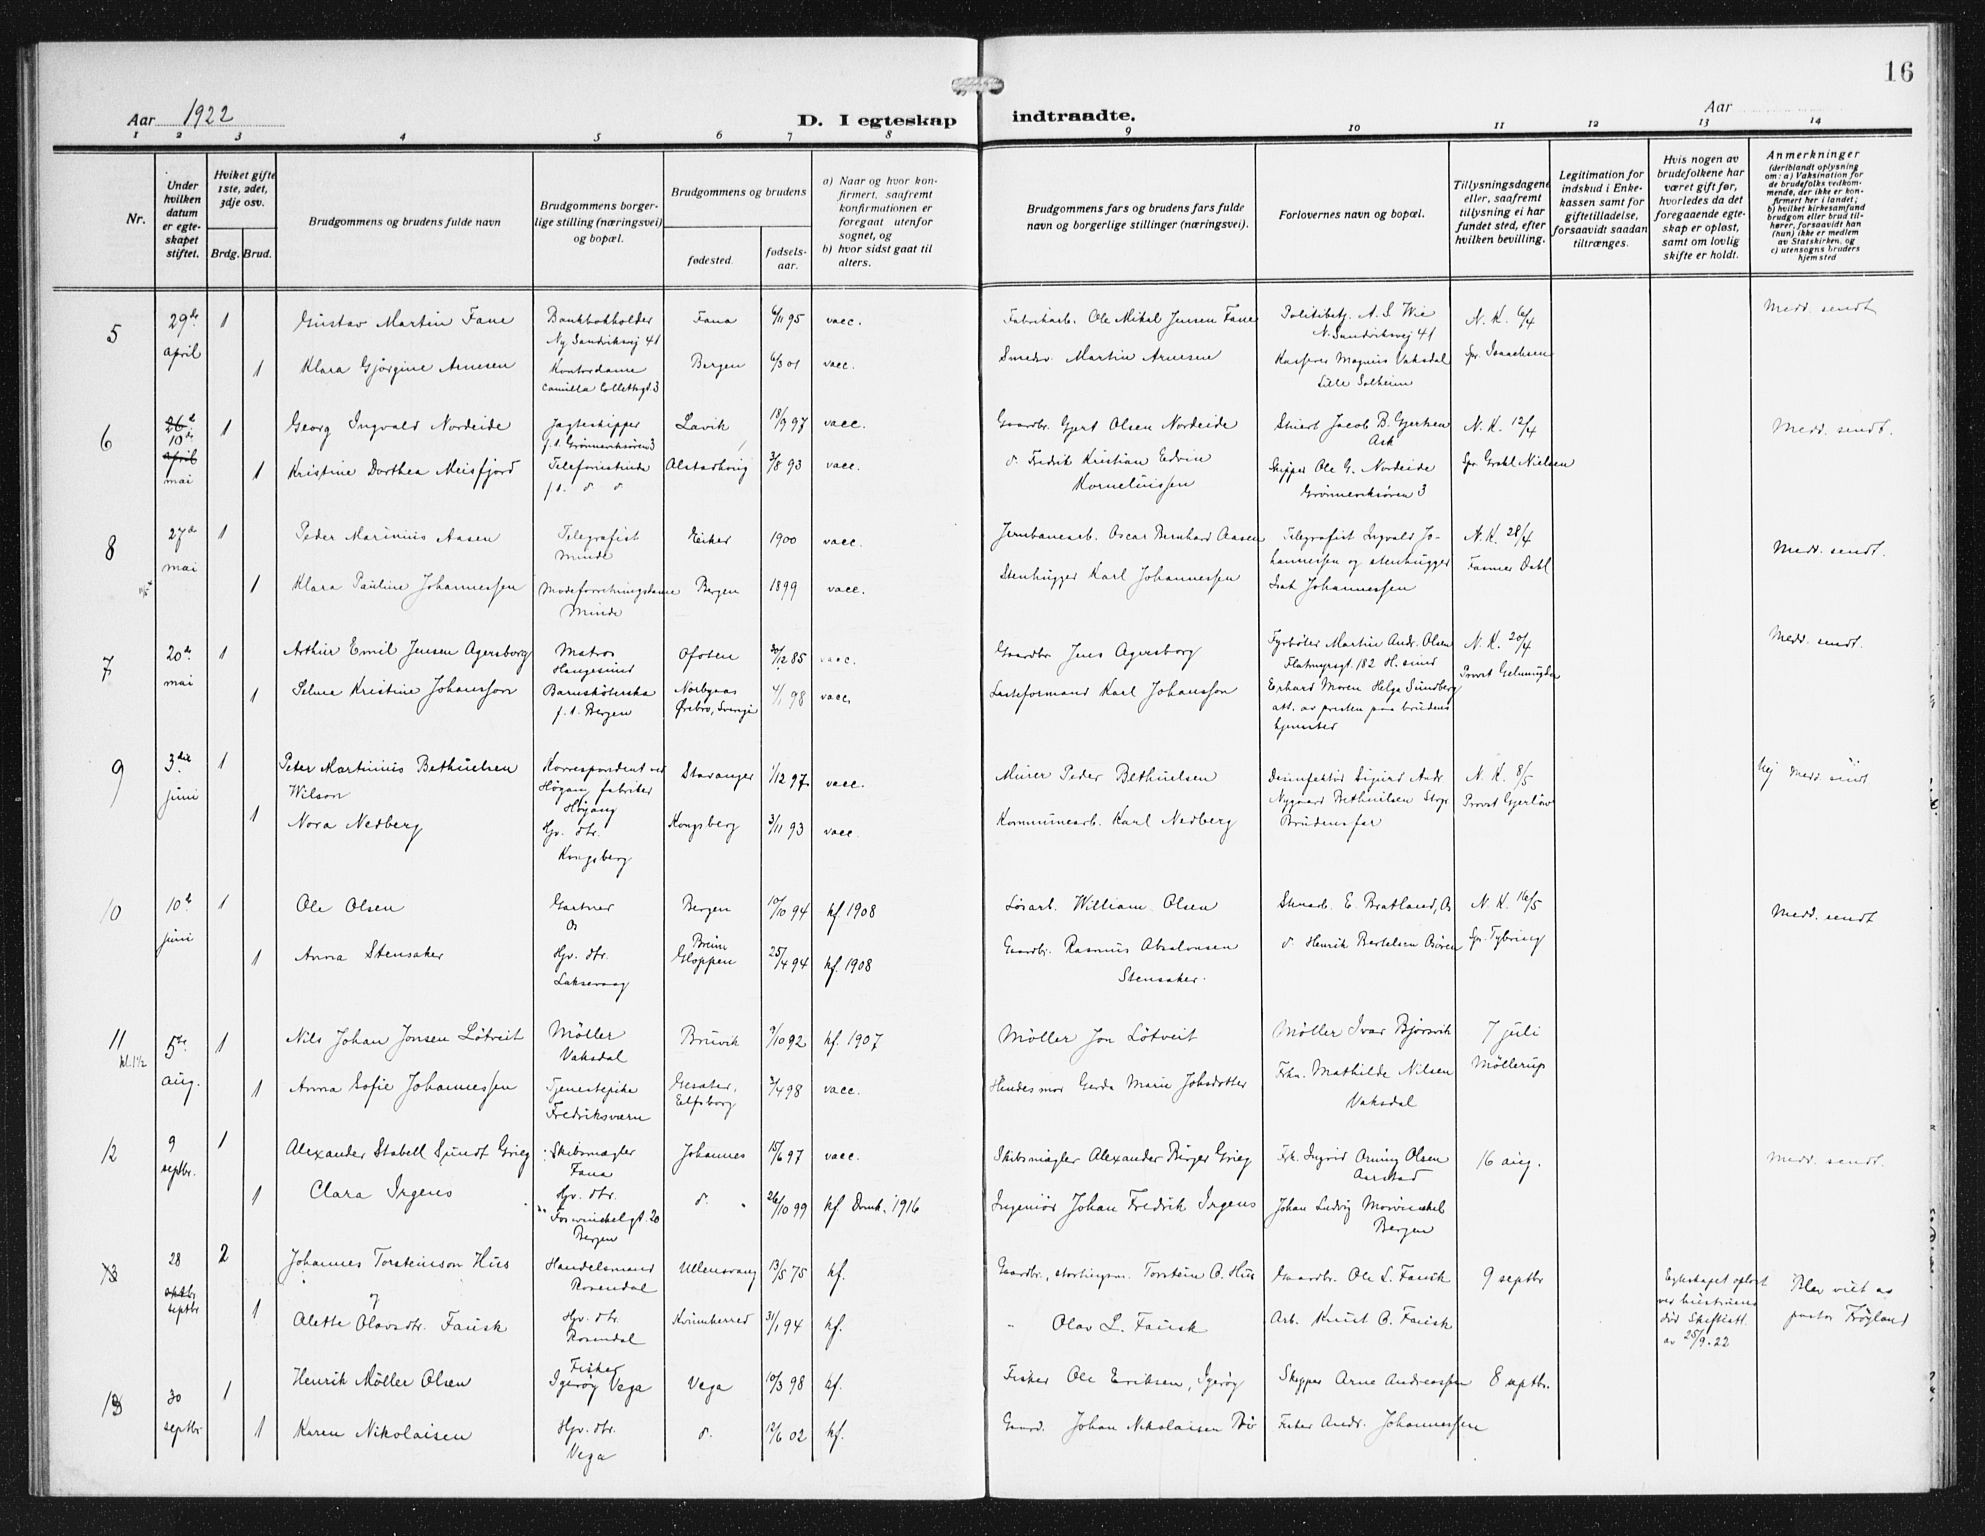 16
Aar 1922
D. I egteskap indtraadte.
Aar
1 2 3 4 5 6 7 8 9 10 11 12 13 14
Nr.
Under hvilken datum er egteskapet stiftet.
Hviket gifte 1ste, 2det, 3dje osv.
Brdg. Brud.
Brudgommens og brudens fulde navn
Brudgommens borgerlige stilling (næringsvei) og bopæl.
Brudgommens og brudens
fødested.
fødselsaar.
a) Naar og hvor konfirmert, saafremt konfirmationen er foregaat utenfor sognet, og
b) hvor sidst gaat til alters.
Brudgommens fars og brudens fars fulde navn og borgerlige stillinger (næringsvei).
Forlovernes navn og bopæl.
Tillysningsdagene eller, saafremt tillysning ei har fundet sted, efter hvilken bevilling.
Legitimation for indskud i Enkekassen samt for giftetilladelse, forsaavidt saadan tiltrænges.
Hvis nogen av brudefolkene har været gift før, hvorledes da det foregaaende egteskap er opløst, samt om lovlig skifte er holdt.
Anmerkninger
(deriblandt oplysning om: a) Vaksination for de brudefolks vedkommende, der ikke er konfirmert her i landet; b) hvilket kirkesamfund brudgom eller brud tilhører, forsaavidt han (hun) ikke er medlem av Statskirken, og c) utensogns bruders hjemsted
5 29de april 1 Gustav Martin Fane Bankbokholder Ny Sandviksvej 41 Fana 6/11 95 vacc. Fabrikarb. Ole Mikal Jensen Fane Politibetj. A. S. Wie N. Sandviksvej 41 N. K. 6/4 Medd. sendt
1 Klara Gjørgine Arnesen Kontordame Camilla Collettsgt. 3 Bergen 6/3 01 vacc. Smedsv. Martin Arnesen Kasserer Magnus Vaksdal Lille Solheim Spr. Isaachsen
6 26d 10de april mai 1 Georg Ingvald Nordeide Jagteskipper f.t. Grønneviksøren 3 Lavik 18/9 97 vacc. Gaardbr. Gjert Olsen Nordeide Stuert Jacob B. Gjertsen Ask N. K. 12/4 Medd. sendt.
1 Kristine Dorthea Meisfjord Telefonistinde f.t. d d Alstadhoug 3/8 93 vacc. d. Fredrik Kristian Edvin Korneliussen Skipper Ole G. Nordeide Grønneviksøren 3 Spr. Grahl Nielsen
8 27de mai 1 Peder Marinius Aasen Telegrafist Minde Eiker 1900 vacc. Jernbanearb. Oscar Bernhard Aasen Telegrafist Ingvald Johannessen og stenhugger Isak Johannessen N. K. 28/4 Medd. sendt.
1 Klara Pauline Johannessen Modeforretningsdame Minde Bergen 1899 vacc. Stenhugger Karl Johannessen
7 20de mai 1 Arthur Emil Jensen Agersborg Matros Haugesund Ofoten 30/12 85 vacc. Gaardbr. Jens Agersborg Fyrbøter Martin Andr. Olsen Flatmyrsgt. 182 H.sund N. K. 20/4 Medd. sendt.
1 Selma Kristine Johansson f.t. Bergen Norbyaas Örebro, Sverige 4/1 98 vacc. Lasteformand Karl Johansson Erhard Moren Helga Sundberg att. av presten paa brudens hjemsted
9 3die juni 1 Peter Martinius Bethuelsen Wilson Korrespondent ved Høyang fabriker Høyang Stavanger 1/12 97 vacc. Murer Peder Bethuelsen Desinfektør Sigurd Andr. Nygaard Bethuelsen N. K. 8/5 Medd. sendt
1 Nora Nedberg Hjv. dtr. Kongsberg Kongsberg 3/11 93 vacc. Kommunearb. Karl Nedberg Brudens far Provst Gjerløw
10 10de juni 1 Ole Olsen Gartner Os Bergen 10/10 94 kf. 1908 Løsarb. William Olsen E. Bratland, Os N. K. 16/5 Medd. sendt
1 Anna Stensaker Hjv. dtr. Laksevaag Breim Gloppen 25/4 94 kf. 1908 Gaardbr. Rasmus Absalonsen Stensaker. d. Henrik Bertelsen Osøren Spr. Tybring
11 kl. 1½ 5te aug. 1 Nils Johan Jonsen Løtveit Møller Vaksdal Bruvik 9/10 92 kf. 1907 Møller Jon Løtveit Møller Ivar Bjørsvik 7 juli
1 Anna Sofie Johannessen Tjenestepike Fredriksværn Elfsborg 3/4 98 vacc. Hendes mor Gerda Marie Johsdotter Frkn. Mathilde Nilsen Vaksdal Møllerup
12 9 septbr. 1 Alexander Stabell Sundt Grieg Skibsmægler Fana Johannes 15/6 97 vacc. Skibsmægler Alexander Birger Grieg Frk. Ingrid Olsen Aarstad 16 aug. Medd. sendt.
1 Clara Irgens Hjv. dtr. Bergen d. 26/10 99 kf. Domk. 1916 Ingeniør Johan Fredrik Irgens Johan Ludvig Mowinckel Bergen
13 28 septbr 2 Johannes Torsteinson Hus Handelsmand Rosendal Ullensvang 13/5 75 kf. Gaardbr., stortingsm. Torstein O. Hus Gaardbr. Ole L. Fausk 9 septbr Egteskapet opløst ved hustruens død Skifteatt. av 25/9-22 Blev viet av pastor Frøyland
1 Alette Olavsdtr. Fausk Hjv. dtr. Rosendal Kvinnherred 31/1 94 kf. " Olav L. Fausk Arb. Knut O. Fausk
13 30 septbr 1 Henrik Møller Olsen Fisker Igerøy Vega Vega 10/3 98 kf. Fisker Ole Eriksen, Igerøy Skipper Arne Andreassen 8 septbr.
1 Karen Nikolaisen Hjv. dtr. Vega d. 12/6 02 kf. Gaard. Johan Nikolaisen Fisker Andr. Johannessen